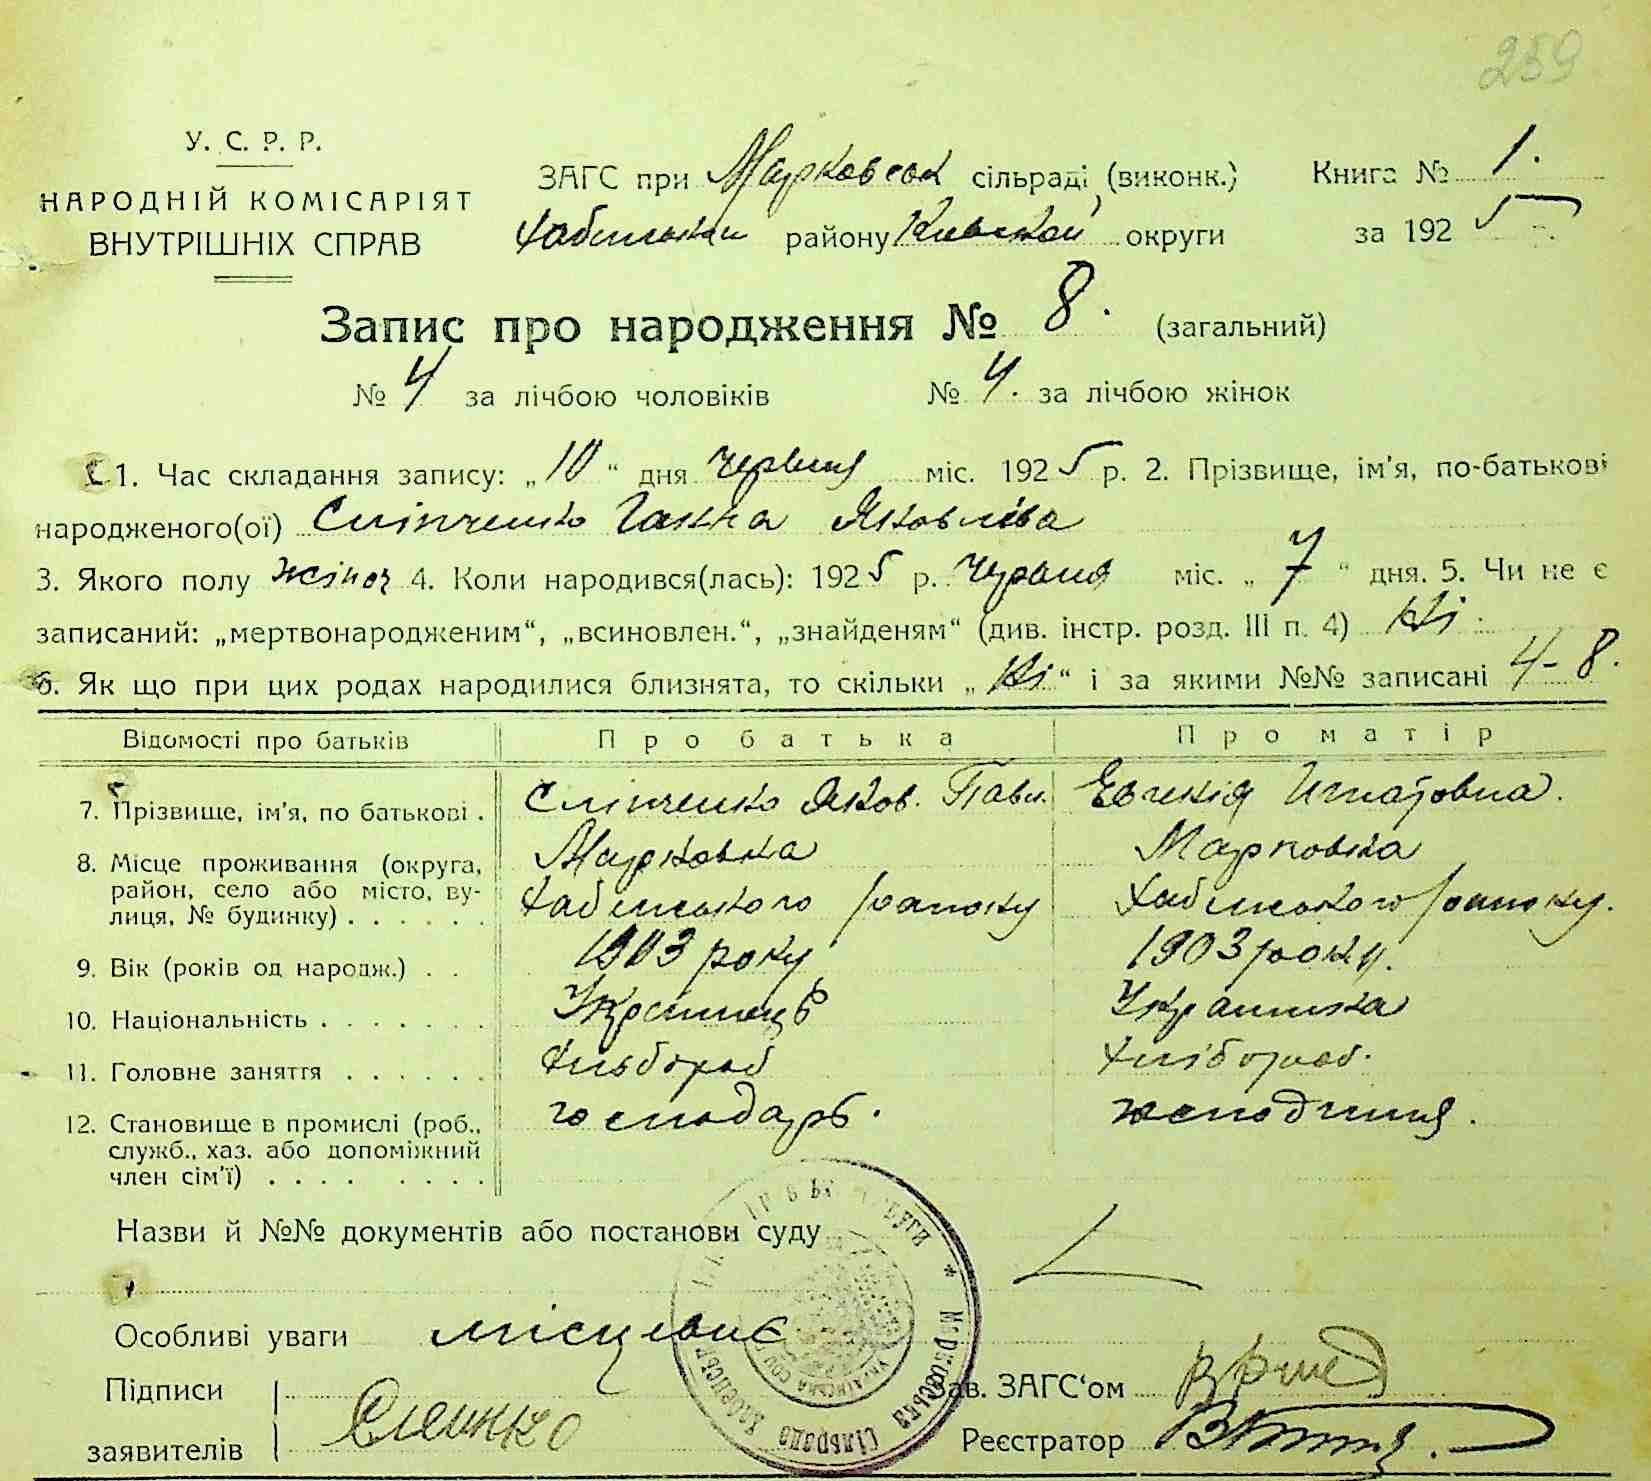 259
У. С. Р. Р.
НАРОДНІЙ КОМІСАРІЯТ
ВНУТРІШНІХ СПРАВ
ЗАГС при Марковськ сільраді (виконк.) Книга № 1.
району Київської округи за 1925 р.
Запис про народження № 8. (загальний)
№ 4 за лічбою чоловіків № 4. за лічбою жінок
1. Час складання запису: „10“ дня червня міс. 1925 р. 2. Прізвище, ім'я, по-батькові
народженого(ої) Сліпченко Ганна Яковліва
3. Якого полу жіноч 4. Коли народився(лась): 1925 р. червня міс. „7“ дня. 5. Чи не є
записаний: „мертвонародженим“, „всиновлен.“, „знайденям“ (див. інстр. розд. III п. 4) Ні
6. Як що при цих родах народилися близнята, то скільки „Ні“ і за якими №№ записані 4-8.
Відомості про батьків Про батька Про матір
7. Прізвище, ім'я, по батькові . Сліпченко Яков. Павл. Евгенія Игнатовна.
8. Місце проживання (округа, район, село або місто, вулиця, № будинку) . . . . . . Марковка Марковка
Хабенського району Хабенського району.
9. Вік (років од народж.) . . 1903 року 1903 року.
10. Національність . . . . . . . Українець Украинка
11. Головне заняття . . . . . . Хлібороб Хлібороб.
12. Становище в промислі (роб., служб., хаз. або допоміжний член сім'ї) . . . . . . . . господарь. господиня.
Назви й №№ документів або постанови суду
Особливі уваги місцевиє
Підписи
заявителів
Зав. ЗАГС'ом
Реєстратор
Марковська Сільрада